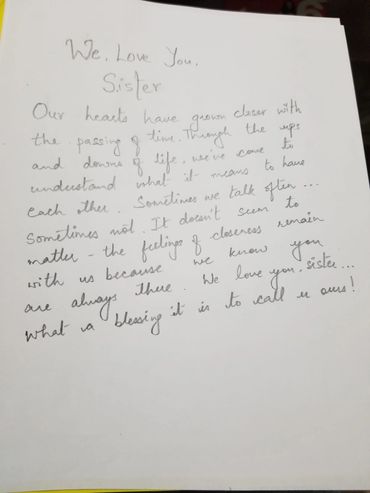 We, Love You,
Sister
Our hearts have grown closer with
the passing of time. Through the ups
and downs of life, we've come to
understand what it means to have
each other. Sometimes we talk often...
Sometimes not. It doesn't seem to
matter - the feelings of closeness remain
with us because we know you
are always there. We love you, sister...
What a blessing it is to call u ours!